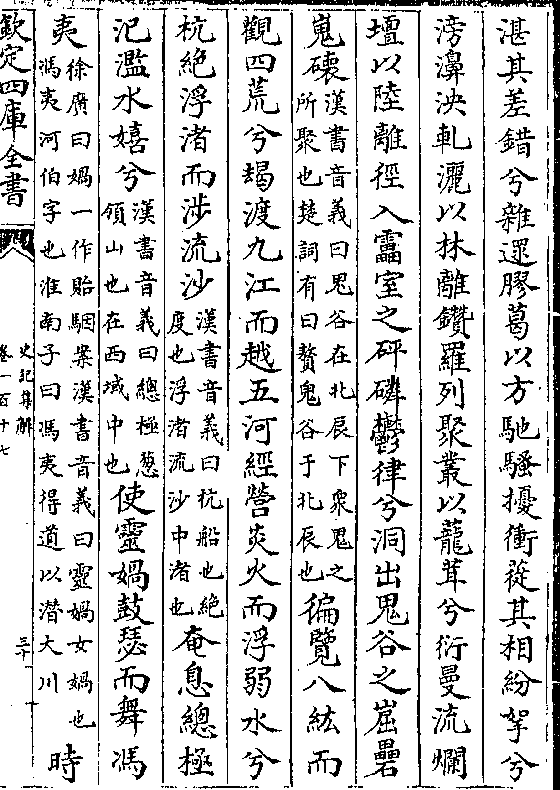 湛其差錯兮雜遝膠葛以方馳騷擾衝蓯其相紛挐兮
滂濞泱軋灑以林離鑽羅列聚叢以蘢茸兮衍曼流爛
壇以陸離徑入靁室之砰磷鬱律兮洞出鬼谷之崫礨
嵬磙漢書音義曰鬼谷在北辰下衆鬼之
所聚也楚詞有曰贅鬼谷于北辰也徧覽八紘而
觀四荒兮朅渡九江而越五河經營炎火而浮弱水兮
杭絶浮渚而涉流沙漢書音義曰杭船也絶
度也浮渚流沙中渚也奄息總極
氾濫水嬉兮漢書音義曰總極葱
領山也在西域中也使靈媧鼓瑟而舞馮
夷徐廣曰媧一作貽駰案漢書音義曰靈媧女媧也
馮夷河伯字也淮南子曰馮夷得道以潜大川時
欽定四庫全書
史記集解
卷一百十七
三十